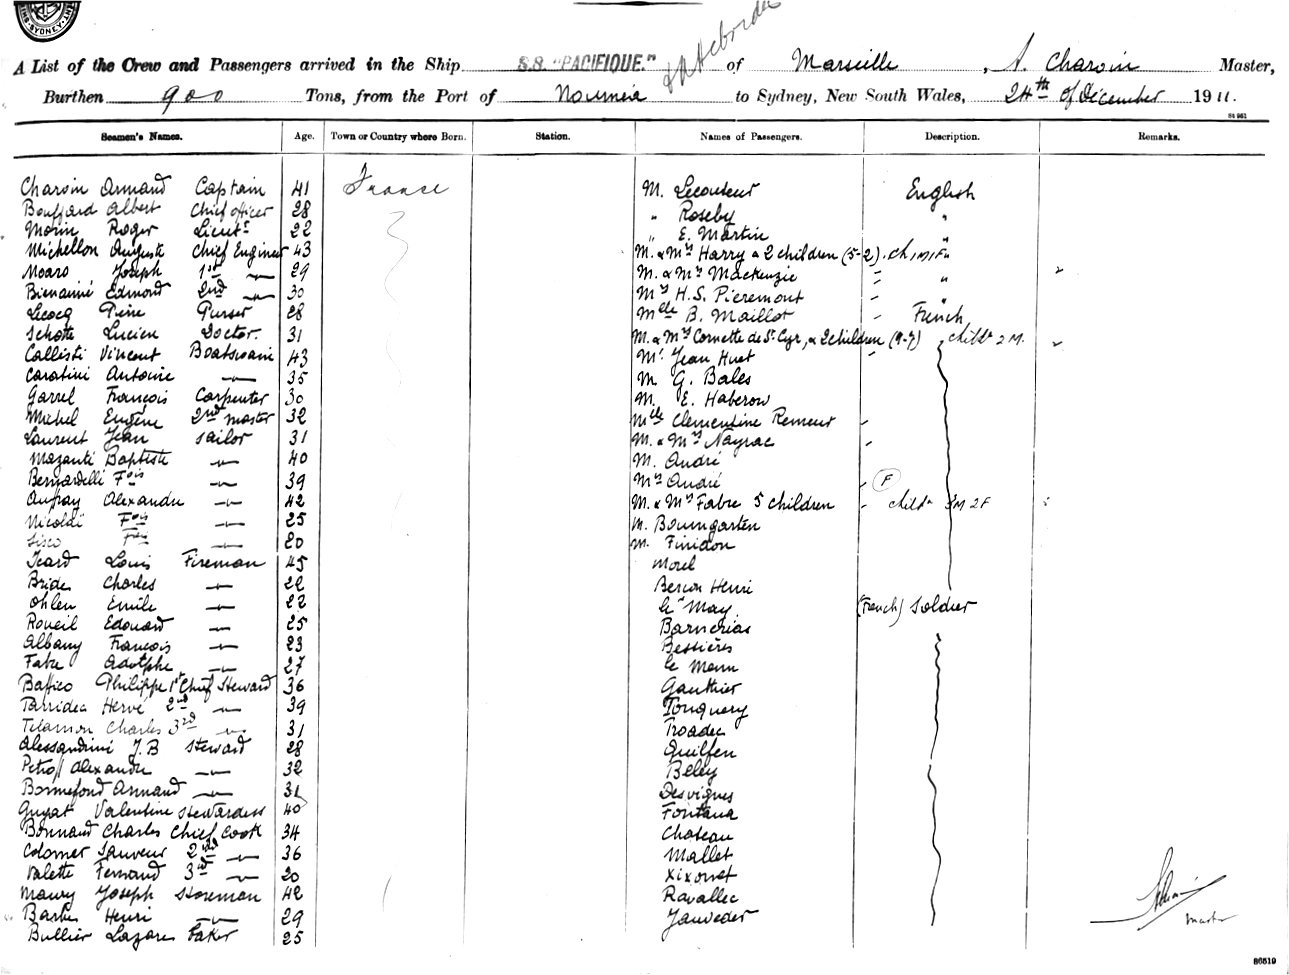 SYDNEY
A List of the Crew and Passengers arrived in the Ship S.S. "PACIFIQUE." of Marseille, A. Charvin Master,
Burthen 900 Tons, from the Port of Noumeia to Sydney, New South Wales, 24th of December 1911.
St 951
Seamen's Names. Age. Town or Country where Born. Station. Names of Passengers. Description. Remarks.
Charvin Armand Captain 41 France M. Lecouteur English
Bouffard Albert Chief officer 28 " Roseby "
Morin Roger Lieut. 22 " E. Martin "
Michellon Auguste Chief Engineer 43 M. & Mrs Harry & 2 children (5-2) ch, 1M1F "
Moaro Joseph 1st 29 M. & Mrs Mackenzie "
Bienaimé Edmond 2nd 30 Mrs H.S. Pieremont "
Lecocq Pierre Purser 28 Melle B. Maillot French
Schotte Lucien Doctor. 31 M. & Mrs Cornette de St Cyr, & 2 children (9-7) childn 2 M.
Callisti Vincent Boatswain 43 Mr. Jean Huet
Caratini Antoine 35 M G. Bales
Garrel François Carpenter 30 M. E. Haberow
Michel Eugène 2nd master 32 Melle Clementine Remeur
Laurent Jean sailor 31 M. & Mrs Nayrac
Mazanti Baptiste 40 M. André
Bernardelli Fois 39 Mrs André F
Aufray Alexandre 42 M. & Mrs Fabre 5 children childn 3M 2F
Nicoldi Fois 25 M. Boumgarten
Sisco Fois 20 M. Finidon
Icard Louis Fireman 45 Morel
Bride Charles 22 Bercon Henri
Ohlen Emile 22 le May (French) Soldier
Roueil Edouard 25 Barnerias
Albany François 23 Bessières
Fabre Adolphe 27 le Menn
Baffico Philippe 1st Chief Steward 36 Gauthier
Barridea Hervé 2nd 39 Touquery
Telamon Charles 3rd 31 Troadec
Alessandrini J.B Steward 28 Guilfen
Petroff Alexandre 32 Beley
Bonnefond Armand 31 Desvignes
Guyat Valentine stewardess 40 Fontana
Bonnaud Charles Chief Cook 34 Chateau
Colomer Sauveur 2nd 36 Mallet
Valette Fernand 3rd 20 Xixonet
Maury Joseph Storeman 42 Ravallec
Barbes Henri 29 Jauveder
Bullier Lazare baker 25
master
86519